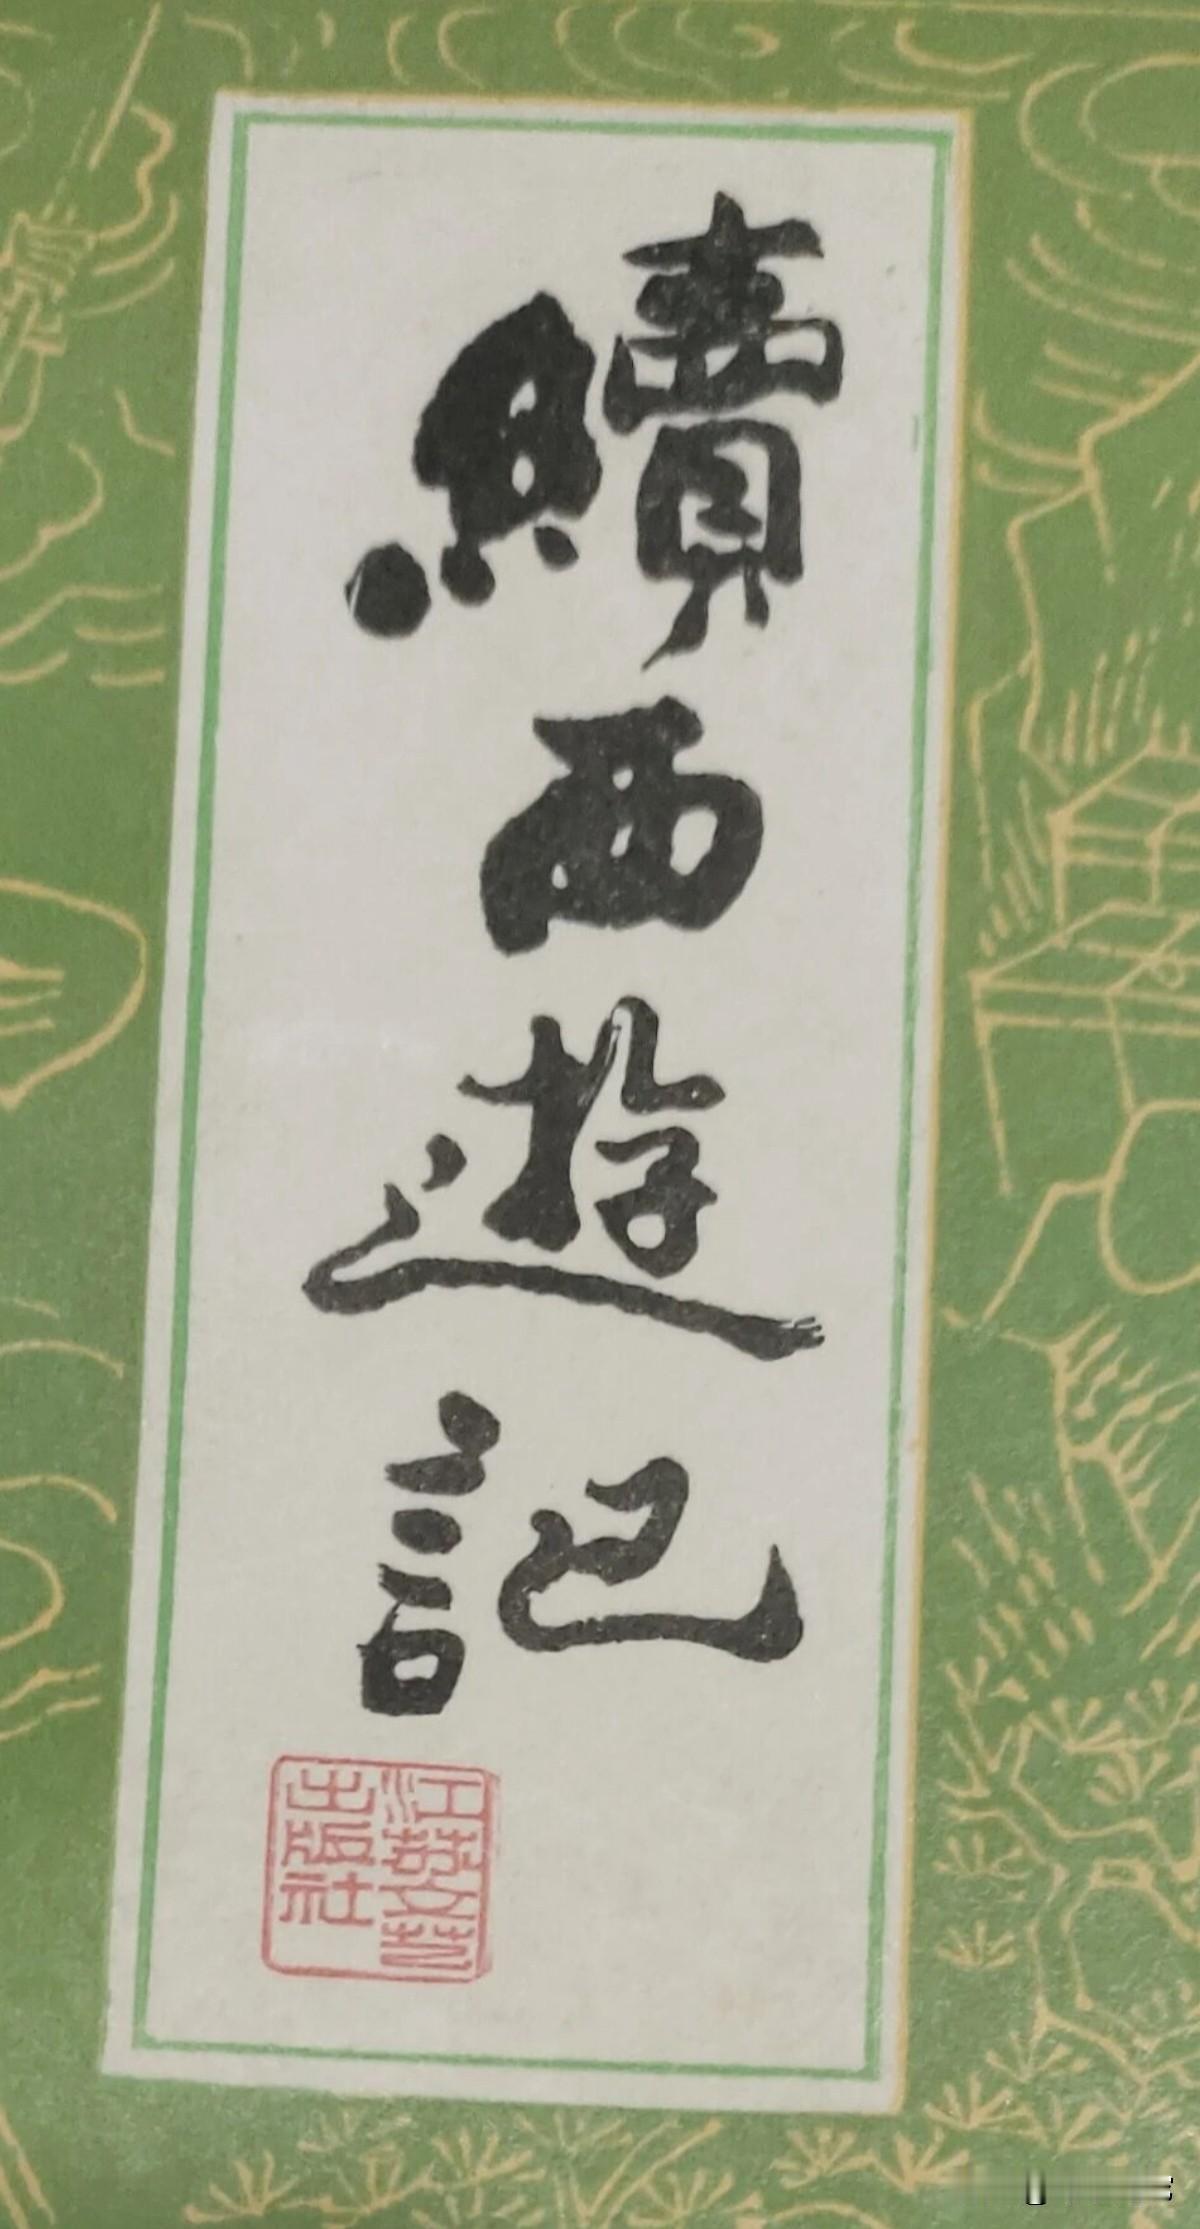 續西遊記
江蘇文艺
出版社